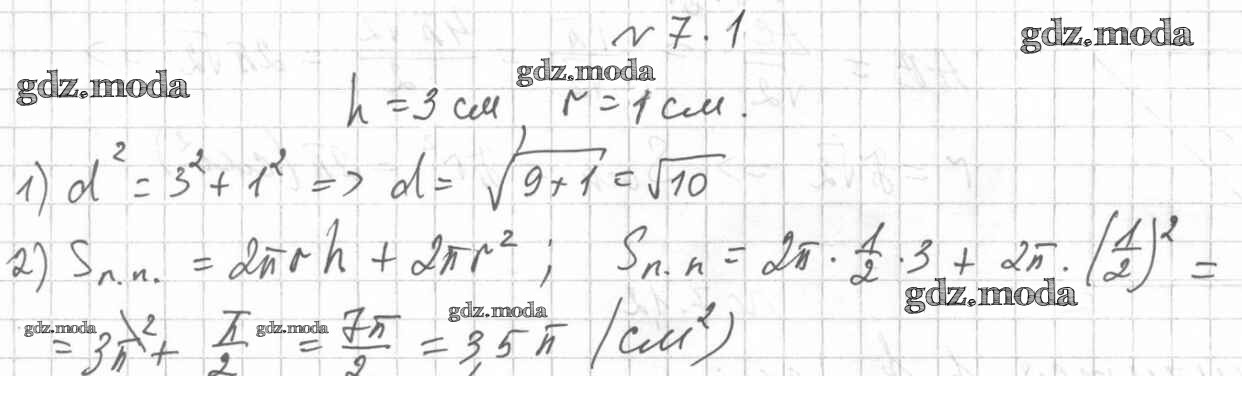 № 7.1
gdz.moda
gdz.moda
gdz.moda
h = 3 см, r = 1 см.
1) d² = 3² + 1² => d = √(9+1) = √10
2) Sп.п. = 2πrh + 2πr² ; Sп.п = 2π · 1/2 · 3 + 2π · (1/2)² =
gdz.moda
gdz.moda
gdz.moda
gdz.moda
= 3π + π/2 = 7π/2 = 3,5π (см²)